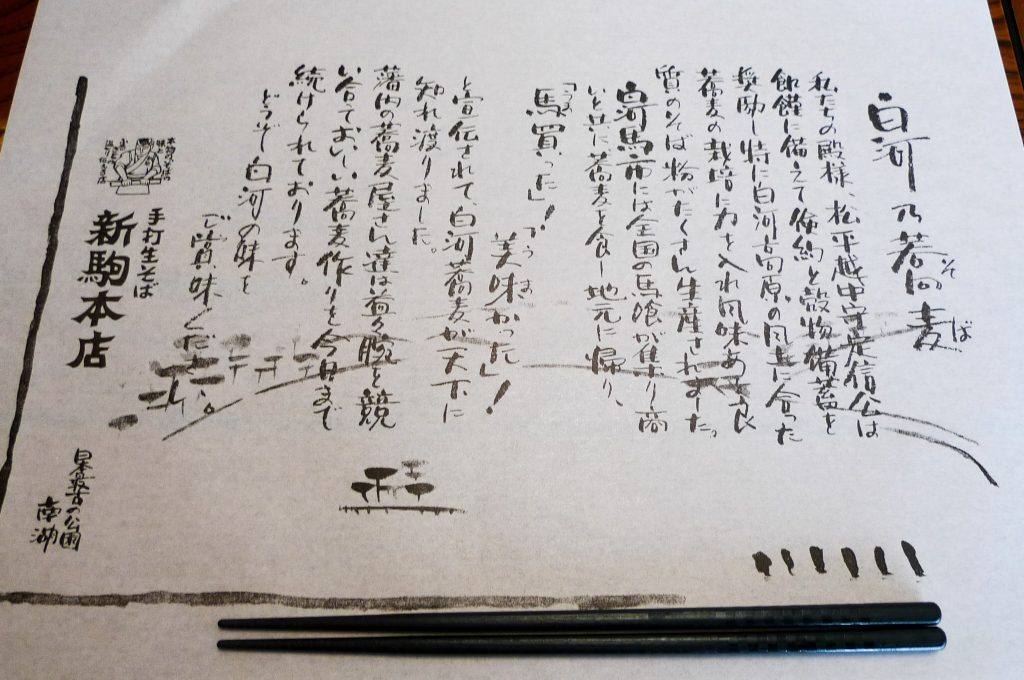 白河乃蕎麦
そば
私たちの殿様、松平越中守定信公は
飢饉に備えて倹約と穀物備蓄を
奨励し特に白河高原の風土に合った
蕎麦の栽培に力を入れ風味ある良
質のそば粉がたくさん生産されました。
白河馬市には全国の馬喰が集り商
いと共に蕎麦を食し地元に帰り、
「馬買った」!
うま
「美味かった」!
うま
と宣伝されて、白河蕎麦が天下に
知れ渡りました。
藩内の蕎麦屋さん達は首を腕を競
い合ておいしい蕎麦作りを今日まで
続けられております。
どうぞ白河の味を
ご賞味ください。
手打生そば
新駒本店
日本最古の公園
南湖